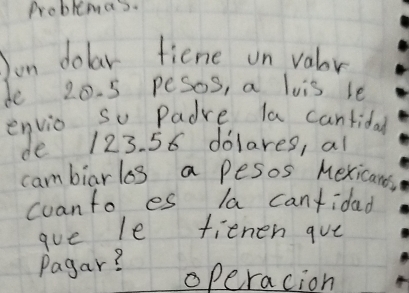 Problemas.
Un dolar tiene un valor
de 20.5 pesos, a luis le
envio su Padre la cantidad
de 123.56 dólares, al
cambiarlos a pesos Mexicanos,
cuanto es la cantidad
que le tienen que
Pagar?
operacion